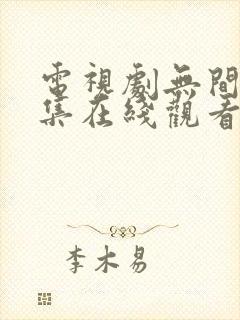 電視劇無間
集在綫觀看
李木易